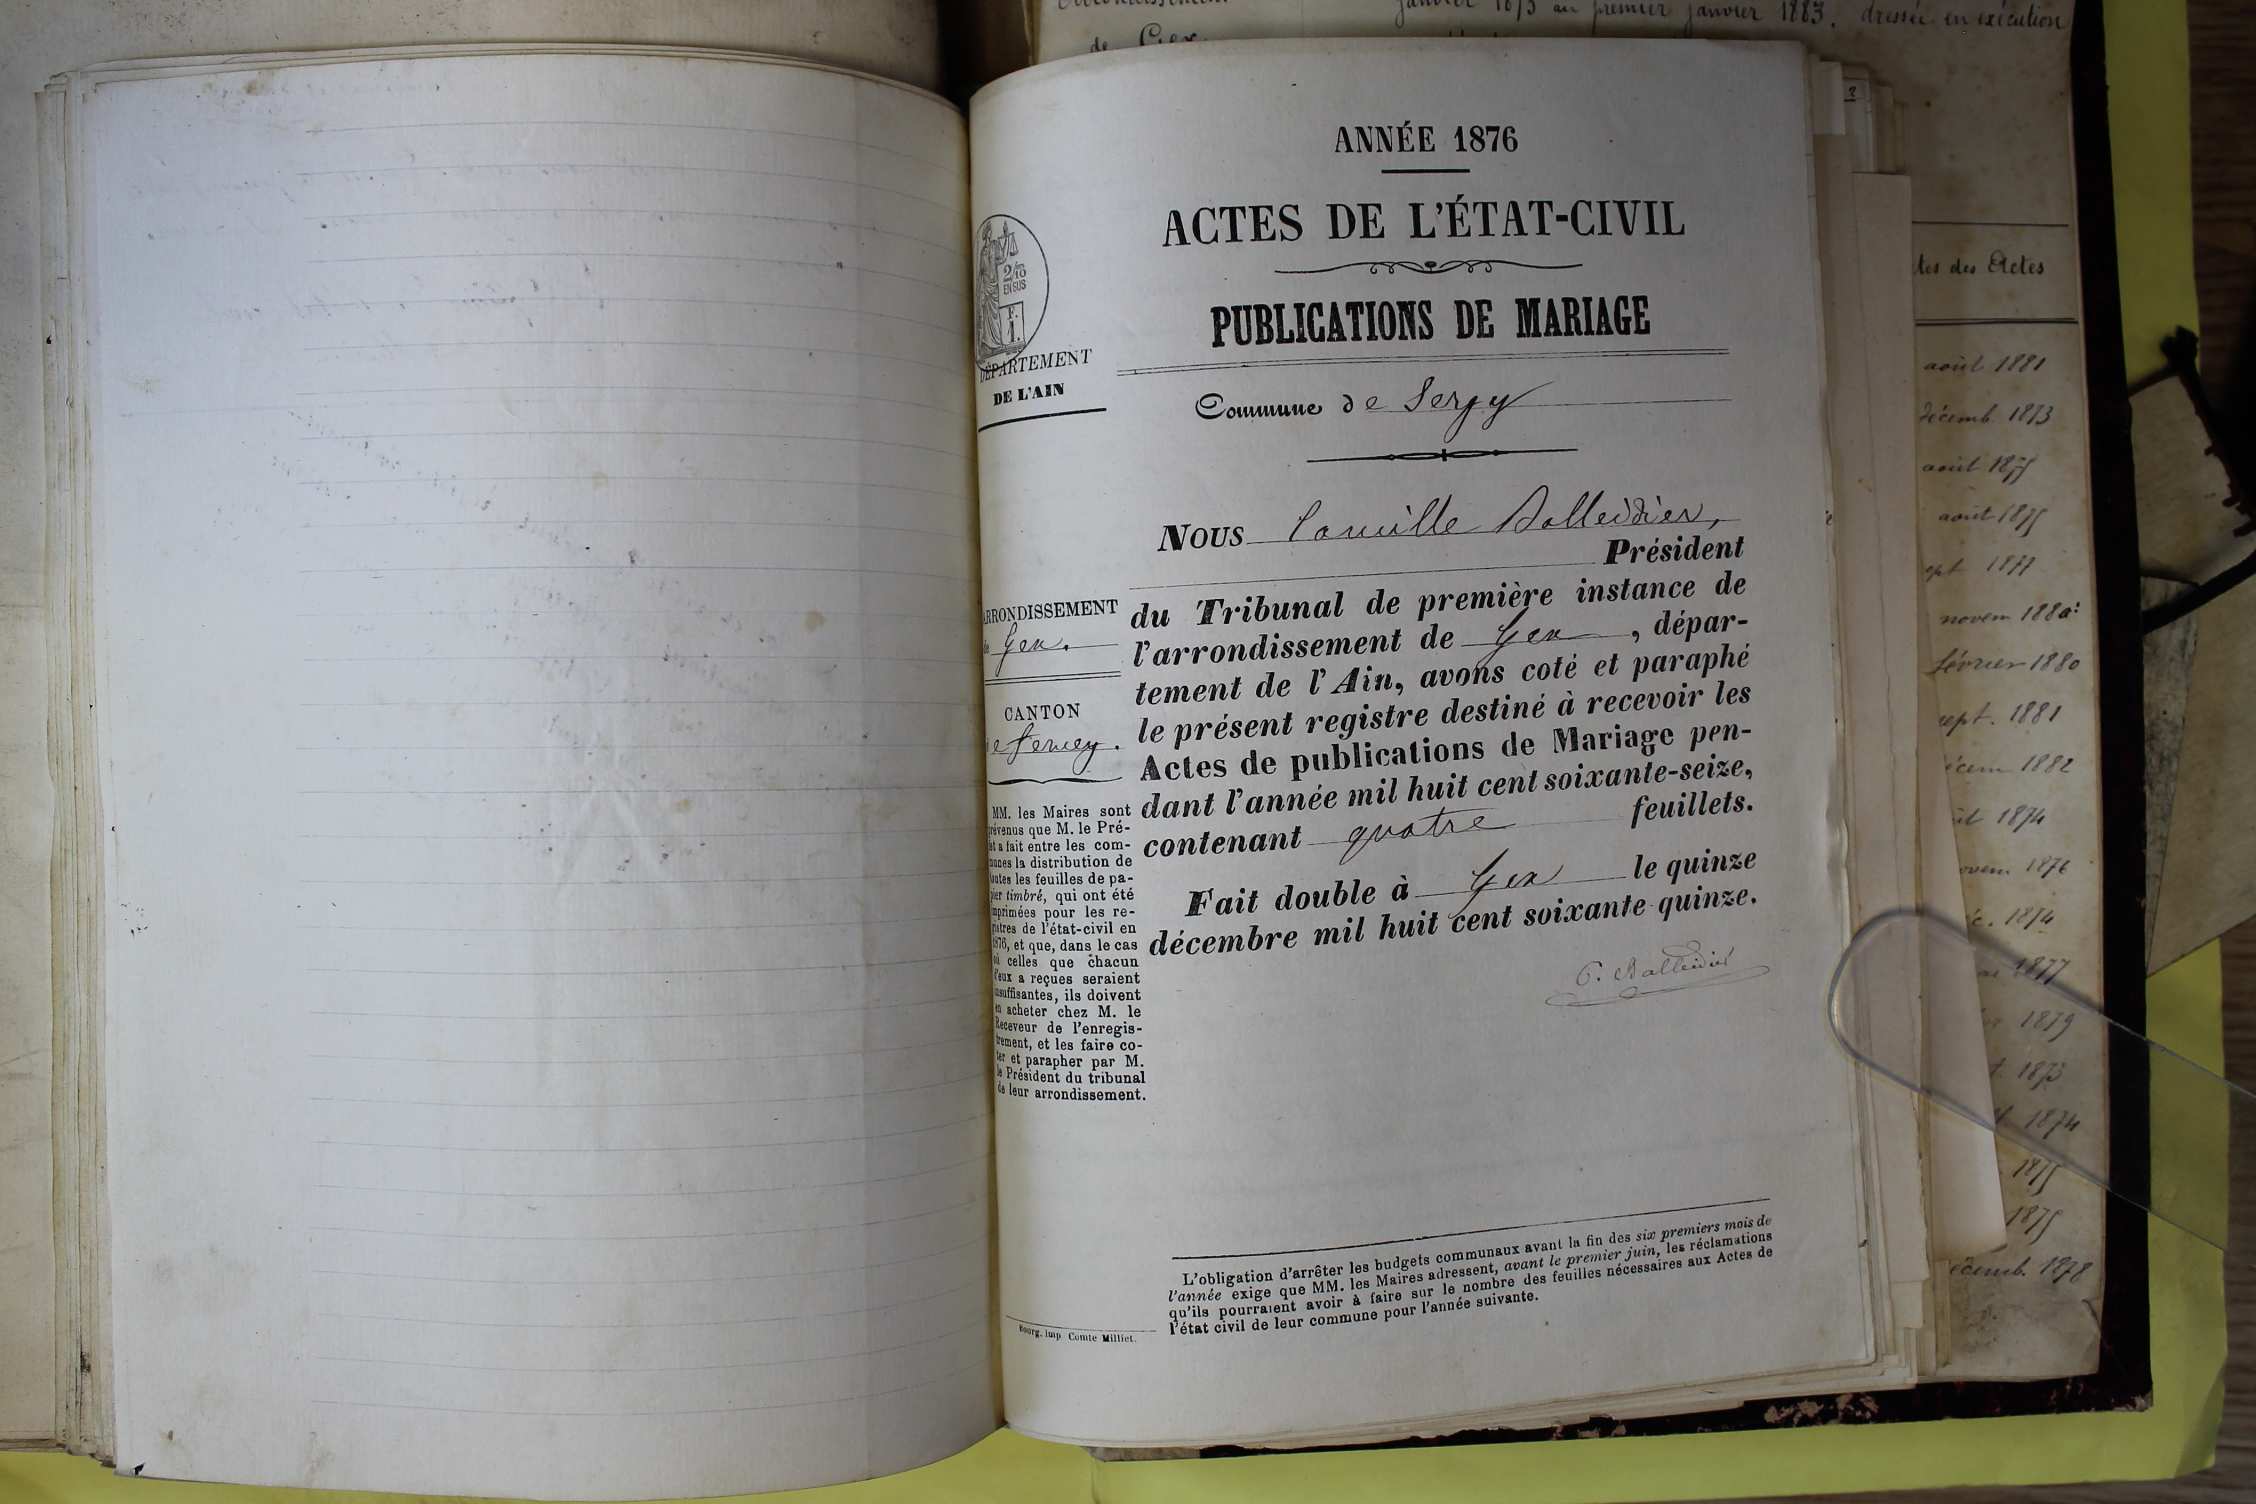 janvier 1873 au premier janvier 1883. dressée en exécution
de Gex.
2
ANNÉE 1876
ACTES DE L'ÉTAT-CIVIL
PUBLICATIONS DE MARIAGE
2/10
EN SUS
F.
1.
DÉPARTEMENT
DE L'AIN
Commune de Sergy
NOUS Camille Balleidier,
Président
du Tribunal de première instance de
l'arrondissement de Gex, dépar-
tement de l'Ain, avons coté et paraphé
le présent registre destiné à recevoir les
Actes de publications de Mariage pen-
dant l'année mil huit cent soixante-seize,
contenant quatre feuillets.
Fait double à Gex le quinze
décembre mil huit cent soixante-quinze.
C. Balleidier
ARRONDISSEMENT
de Gex.
CANTON
de Ferney.
MM. les Maires sont
prévenus que M. le Pré-
fet a fait entre les com-
munes la distribution de
toutes les feuilles de pa-
pier timbré, qui ont été
imprimées pour les re-
gistres de l'état-civil en
1876, et que, dans le cas
où celles que chacun
d'eux a reçues seraient
insuffisantes, ils doivent
en acheter chez M. le
Receveur de l'enregis-
trement, et les faire co-
ter et parapher par M.
le Président du tribunal
de leur arrondissement.
L'obligation d'arrêter les budgets communaux avant la fin des six premiers mois de
l'année exige que MM. les Maires adressent, avant le premier juin, les réclamations
qu'ils pourraient avoir à faire sur le nombre des feuilles nécessaires aux Actes de
l'état civil de leur commune pour l'année suivante.
Bourg, imp. Comte Milliet.
tes des Actes
août 1881
décemb. 1873
août 1875
août 1875
sept 1877
novem 1880
février 1880
sept. 1881
décem 1882
1874
novem. 1876
1874
1877
1879
1873
1874
1875
1875
décemb. 1878